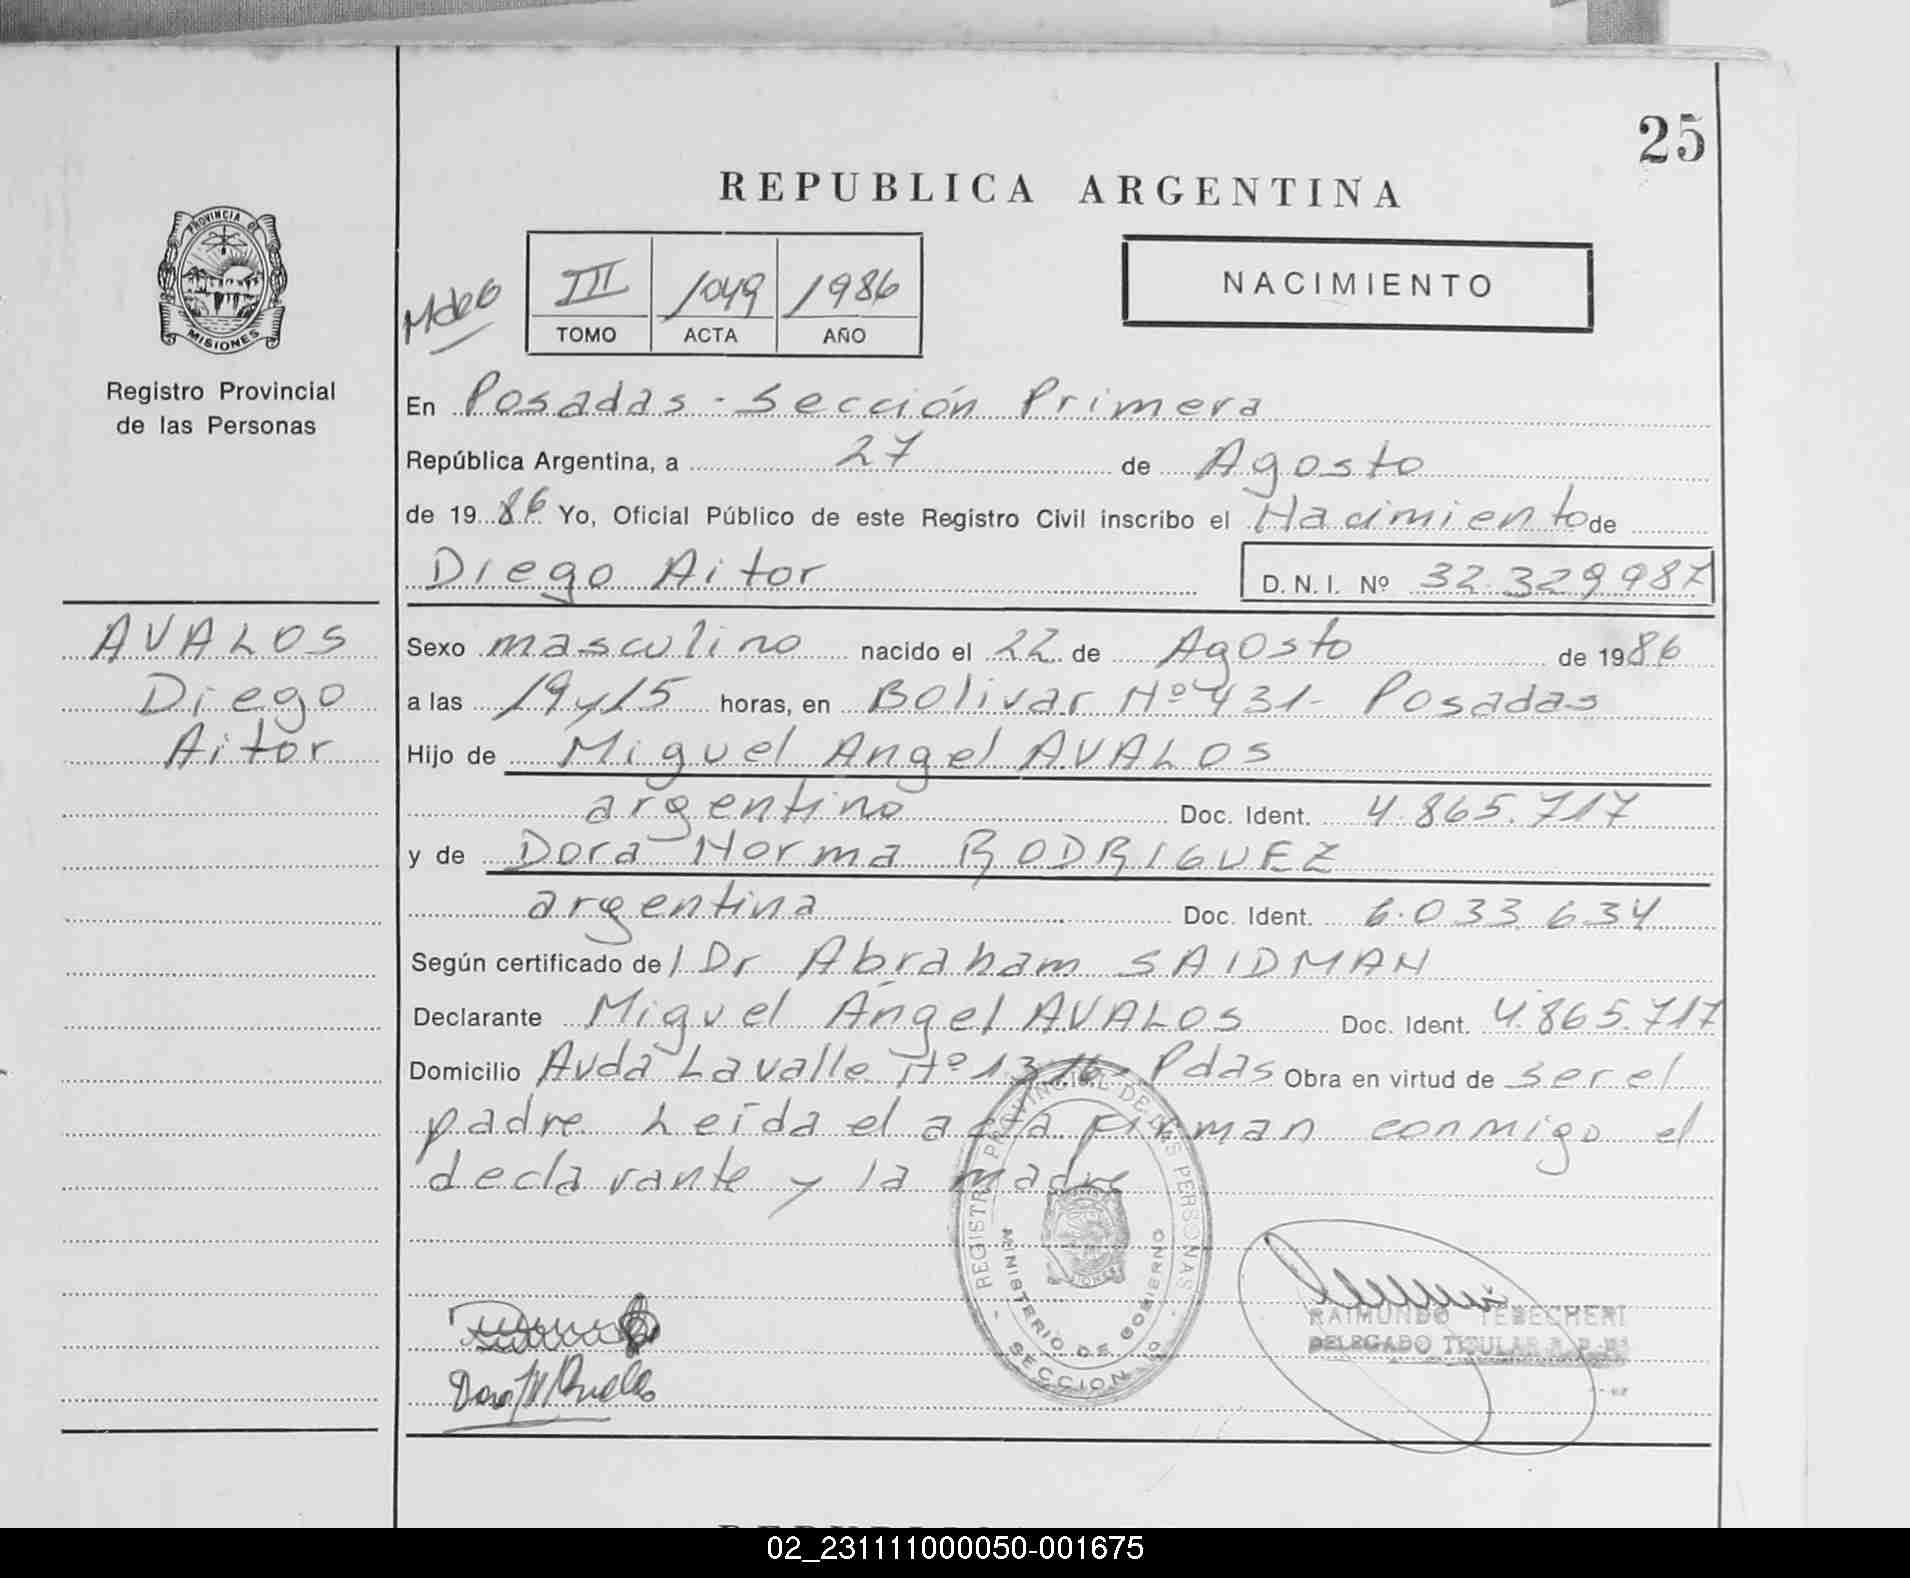 25
REPUBLICA ARGENTINA
PROVINCIA DE
MISIONES
Registro Provincial
de las Personas
III 1049 1986
TOMO ACTA AÑO
NACIMIENTO
En Posadas - Sección Primera
República Argentina, a 27 de Agosto
de 1986 Yo, Oficial Público de este Registro Civil inscribo el Nacimiento de
Diego Aitor D.N.I. Nº 32.329.987
AVALOS
Diego
Aitor
Sexo masculino nacido el 22 de Agosto de 1986
a las 19 y 15 horas, en Bolivar Nº 431- Posadas
Hijo de Miguel Angel AVALOS
argentino Doc. Ident. 4.865.717
y de Dora Norma RODRIGUEZ
argentina Doc. Ident. 6.033.634
Según certificado del Dr Abraham SAIDMAN
Declarante Miguel Angel AVALOS Doc. Ident. 4.865.717
Domicilio Avda Lavalle Nº 1316- Pdas Obra en virtud de ser el
padre Leída el acta firman conmigo el
declarante y la madre
REGISTRO PROVINCIAL DE LAS PERSONAS
MINISTERIO DE GOBIERNO
SECCION
RAIMUNDO TEBECHERI
DELEGADO TITULAR
02_231111000050-001675